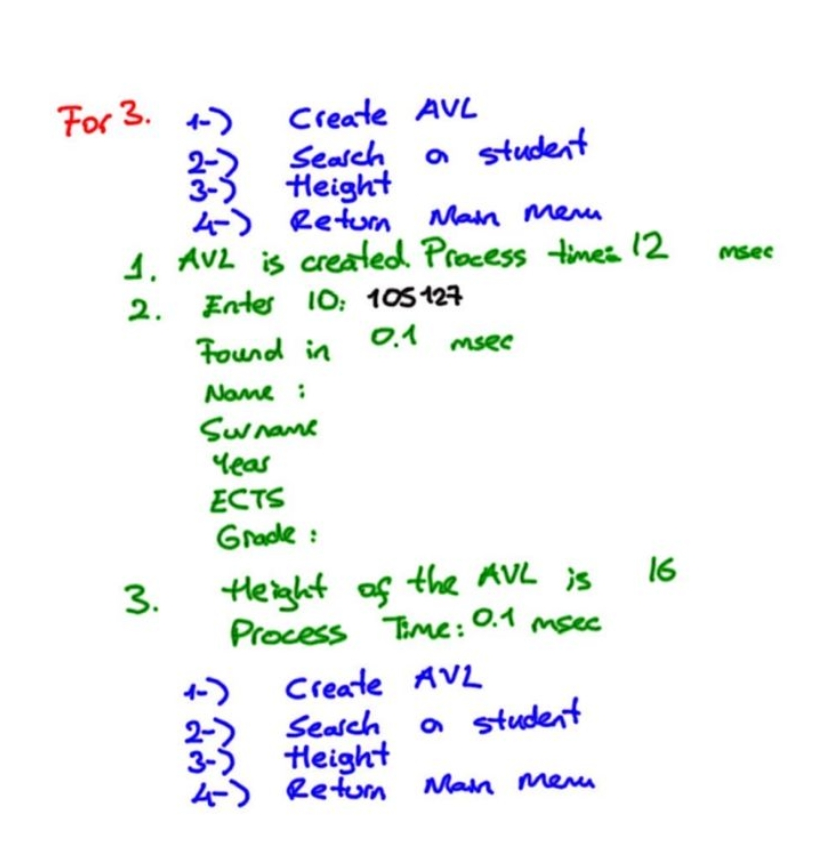 For 3. 1-) Create AVL
2-) Search a student
3-) Height
4-) Return Main Menu
1. AVL is created. Process time: 12 msec
2. Enter ID: 105127
Found in 0.1 msec
Name :
Surname
Year
ECTS
Grade :
3. Height of the AVL is 16
Process Time: 0.1 msec
1-) Create AVL
2-) Search a student
3-) Height
4-) Return Main Menu